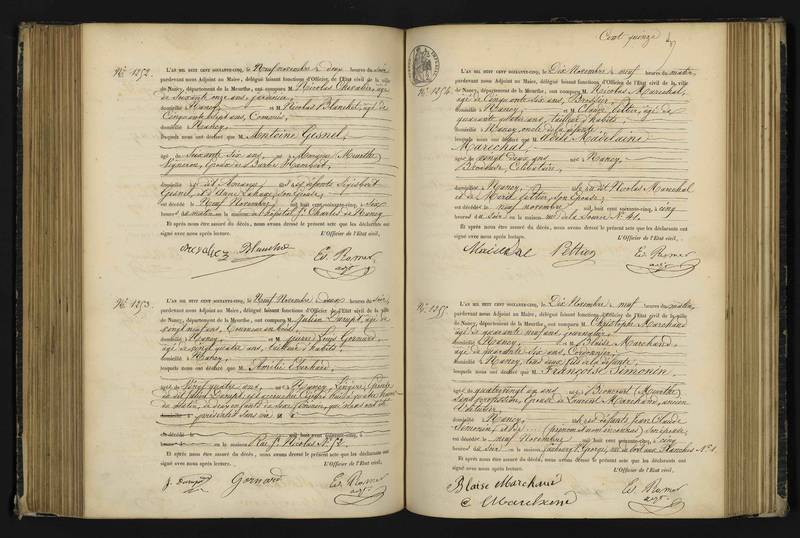 N° 1252.
L'AN MIL HUIT CENT SOIXANTE-CINQ, le Neuf novembre à deux heures du soir
pardevant nous Adjoint au Maire, délégué faisant fonctions d'Officier de l'Etat civil de la ville
de Nancy, département de la Meurthe, ont comparu M. Nicolas Chevalier, âgé
de Soixante onze ans, jardinier,
domicilié Nancy et M. Nicolas Blanchet, âgé de
Cinquante ans, Commis,
domicilié Nancy
lesquels nous ont déclaré que M. Antoine Gesnel,
âgé de Soixante dix ans, né à Amance (Meurthe)
Vigneron, époux de Barbe Humbert,
domicilié audit Amance, des défunts
Gesnel, et son Epouse,
est décédé le Neuf Novembre mil huit cent soixante-cinq, à Six
heures du matin en la maison hôpital St Charles de Nancy
Et après nous être assuré du décès, nous avons dressé le présent acte que les déclarants ont
signé avec nous après lecture. L'Officier de l'Etat civil,
chevalier
Ed. Ramer
N° 1253.
L'AN MIL HUIT CENT SOIXANTE-CINQ, le Neuf Novembre à deux heures du Soir,
pardevant nous Adjoint au Maire, délégué faisant fonctions d'Officier de l'Etat civil de la ville
de Nancy, département de la Meurthe, ont comparu M. Julien âgé de
vingt neuf ans, Tourneur en bois,
domicilié Nancy et M. pierre Louis Gornard,
âgé de vingt quatre ans, tailleur d'habits,
domicilié Nancy,
lesquels nous ont déclaré que M. Amélie
âgée de Vingt quatre ans, née à Nancy, Lingère, Epouse
présentés sans vie
est décédé le mil huit cent soixante-cinq, à
en la maison Rue St Nicolas N° 52.
Et après nous être assuré du décès, nous avons dressé le présent acte que les déclarants ont
signé avec nous après lecture. L'Officier de l'Etat civil,
Gornard
Ed. Ramer
Cent quinze
N° 1254.
L'AN MIL HUIT CENT SOIXANTE-CINQ, le Dix Novembre à neuf heures du matin,
pardevant nous Adjoint au Maire, délégué faisant fonctions d'Officier de l'Etat civil de la ville
de Nancy, département de la Meurthe, ont comparu M. Nicolas Marechal,
âgé de Cinquante six ans, Brossier,
domicilié Nancy, et M. âgé de
quarante quatre ans, tailleur d'habits,
domicilié Nancy, oncle de la défunte,
lesquels nous ont déclaré que M. Adèle Madelaine
Marechal,
âgée de vingt deux ans née à Nancy,
Brodeuse, Célibataire,
domiciliée Nancy, fille dudit Nicolas Marechal
et de son Epouse;
est décédée le neuf novembre mil huit cent soixante-cinq, à cinq
heures du soir en la maison rue de la Source N° 41.
Et après nous être assuré du décès, nous avons dressé le présent acte que les déclarants ont
signé avec nous après lecture. L'Officier de l'Etat civil,
Ed. Ramer
N° 1255.
L'AN MIL HUIT CENT SOIXANTE-CINQ, le Dix Novembre à neuf heures du matin,
pardevant nous Adjoint au Maire, délégué faisant fonctions d'Officier de l'Etat civil de la ville
de Nancy, département de la Meurthe, ont comparu M. Christophe Marchand
âgé de quarante neuf ans, journalier,
domicilié Nancy, et M. Blaise Marchand,
âgé de quarante six ans, Cordonnier,
domicilié Nancy, tous deux fils de la défunte,
lesquels nous ont déclaré que M. Françoise Simonin,
âgée de quatre vingt un ans, née à Bioncourt (Meurthe)
Sans profession, Epouse de Laurent Marchand, ancien
domiciliée Nancy, fille des défunts Jean Claude
Simonin, et de ... (prénom et nom inconnus) Son épouse;
est décédée le neuf Novembre mil huit cent soixante-cinq, à cinq
heures du soir en la maison faubourg St Georges, N° 1.
Et après nous être assuré du décès, nous avons dressé le présent acte que les déclarants ont
signé avec nous après lecture. L'Officier de l'Etat civil,
Blaise Marchand
C Marchand
Ed. Ramer